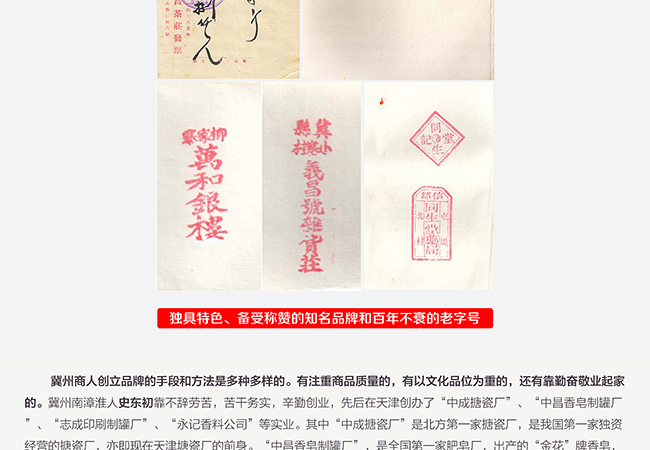 昌茶莊發票
柳家寨
萬和銀樓
冀縣
小寨村
義昌號雜貨莊
同生堂記
信都
同生堂藥局
北
村
独具特色、备受称赞的知名品牌和百年不衰的老字号
冀州商人创立品牌的手段和方法是多种多样的。有注重商品质量的，有以文化品位为重的，还有靠勤奋敬业起家
的。冀州南漳淮人史东初靠不辞劳苦，苦干务实，辛勤创业，先后在天津创办了“中成搪瓷厂”、“中昌香皂制罐厂
”、“志成印刷制罐厂”、“永记香料公司”等实业。其中“中成搪瓷厂”是北方第一家搪瓷厂，是我国第一家独资
经营的搪瓷厂，亦即现在天津塘瓷厂的前身。“中昌香皂制罐厂”，是全国第一家肥皂厂，出产的“金花”牌香皂，